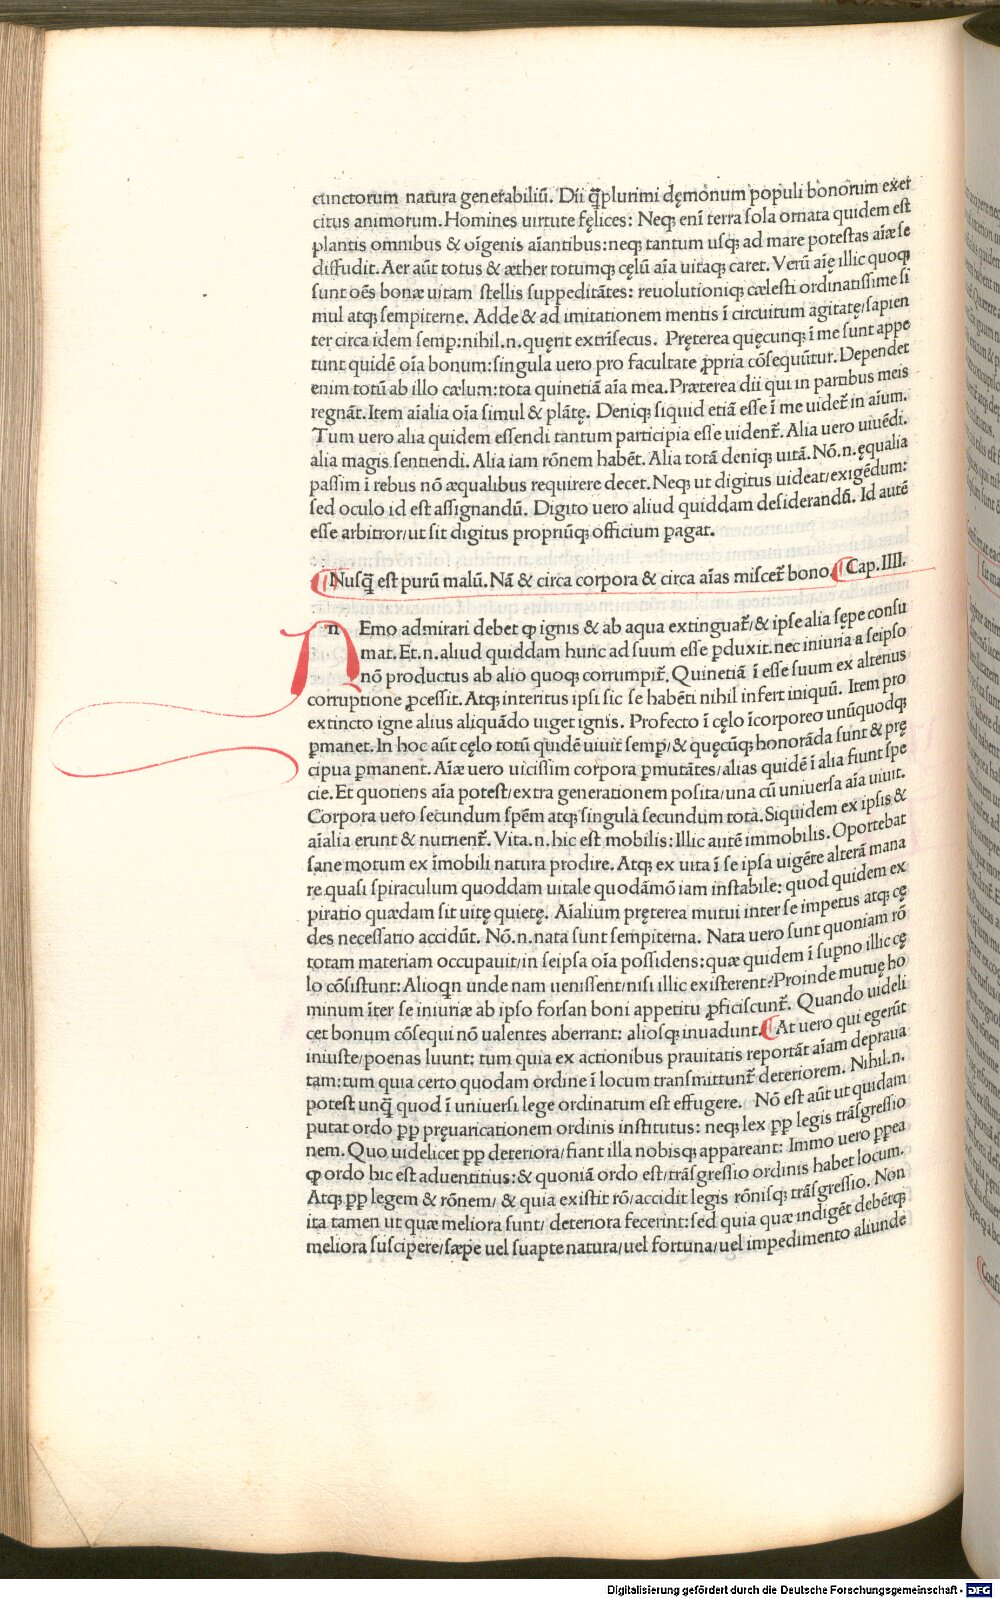 cunctorum natura generabiliū. Dii q̄plurimi dęmonum populi bonorum exer
citus animorum. Homines uirtute fęlices: Neqꝫ eni terra sola ornata quidem est
plantis omnibus & oīgenis aīantibus: neqꝫ tantum usqꝫ ad mare potestas aīæ se
diffudit. Aer aūt totus & æther totumqꝫ cęlū aīa uitaqꝫ caret. Verū aīę illic quoqꝫ
sunt oēs bonæ uitam stellis suppeditātes: reuolutioniqꝫ cælesti ordinatissime si
mul atqꝫ sempiterne. Adde & ad imitationem mentis ī circuitum agitatę/sapien
ter circa idem semꝑ: nihil.n.quęrit extrīsecus. Pręterea quęcunqꝫ ī me sunt appe
tunt quidē oīa bonum: singula uero pro facultate ꝓpria cōsequūtur. Dependet
enim totū ab illo cælum: tota quinetiā aīa mea. Præterea dii qui in partibus meis
regnāt. Item aīalia oīa simul & plātę. Deniqꝫ siquid etiā esse ī me uidet̄ in aīum.
Tum uero alia quidem essendi tantum participia esse uident̄. Alia uero uiuēdi.
alia magis sentiendi. Alia iam rōnem habēt. Alia totā deniqꝫ uitā. Nō.n.ęqualia
passim ī rebus nō æqualibus requirere decet. Neqꝫ ut digitus uideat/exigēdum:
sed oculo id est assignandū. Digito uero aliud quiddam desiderandū. Id autē
esse arbitror/ut sit digitus propriūqꝫ officium ꝑagat.
¶ Nusq̄ est purū malū. Nā & circa corpora & circa aīas miscet̄ bono. ¶ Cap.IIII.
n Emo admirari debet ꝙ ignis & ab aqua extinguat̄/& ipse alia sępe consu
mat. Et.n.aliud quiddam hunc ad suum esse ꝑduxit. nec iniuria a seipso
nō productus ab alio quoqꝫ corrumpit̄. Quinetiā ī esse suum ex alterius
corruptione ꝓcessit. Atqꝫ interitus ipsi sic se habēti nihil infert iniquū. Item pro
extincto igne alius aliquādo uiget ignis. Profecto ī cęlo īcorporeo unūquodqꝫ
ꝑmanet. In hoc aūt cęlo totū quidē uiuit semꝑ/& quęcūqꝫ honorāda sunt & prę
cipua ꝑmanent. Aīæ uero uicissim corpora ꝑmutātes/alias quidē ī alia fiunt spe
cie. Et quotiens aīa potest/extra generationem posita/una cū uniuersa aīa uiuit.
Corpora uero secundum spēm atqꝫ singula secundum tota. Siquidem ex ipsis &
aīalia erunt & nutrient̄. Vita.n.hic est mobilis: Illic autē immobilis. Oportebat
sane motum ex īmobili natura prodire. Atqꝫ ex uita ī se ipsa uigēte alterā mana
re quasi spiraculum quoddam uitale quodāmō iam instabile: quod quidem ex
piratio quædam sit uitę quietę. Aīalium pręterea mutui inter se impetus atqꝫ cę
des necessario accidūt. Nō.n.nata sunt sempiterna. Nata uero sunt quoniam rō
totam materiam occupauit/in seipsa oīa possidens: quæ quidem ī suꝑno illic cę
lo cōsistunt: Alioqn unde nam uenissent/nisi illic existerent? Proinde mutuę ho
minum īter se iniuriæ ab ipso forsan boni appetitu ꝓficiscunt̄. Quando uideli
cet bonum cōsequi nō ualentes aberrant: aliosqꝫ inuadunt. ¶ At uero qui egerūt
iniuste/poenas luunt: tum quia ex actionibus prauitatis reportāt aīam depraua
tam: tum quia certo quodam ordine ī locum transmittunt̄ deteriorem. Nihil.n.
potest unq̄ quod ī uniuersi lege ordinatum est effugere. Nō est aūt ut quidam
putat ordo ꝓp pręuaricationem ordinis institutus: neqꝫ lex ꝓp legis trāsgressio
nem. Quo uidelicet ꝓp deteriora/fiant illa nobisqꝫ appareant: Immo uero ꝓpea
ꝙ ordo hic est aduentitius: & quoniā ordo est/trāsgressio ordinis habet locum.
Atqꝫ ꝓp legem & rōnem/ & quia existit rō/accidit legis rōnisqꝫ trāsgressio. Non
ita tamen ut quæ meliora sunt/ deteriora fecerint: sed quia quæ indigēt debētqꝫ
meliora suscipere/sæpe uel suapte natura/uel fortuna/uel impedimento aliunde
Digitalisierung gefördert durch die Deutsche Forschungsgemeinschaft - DFG